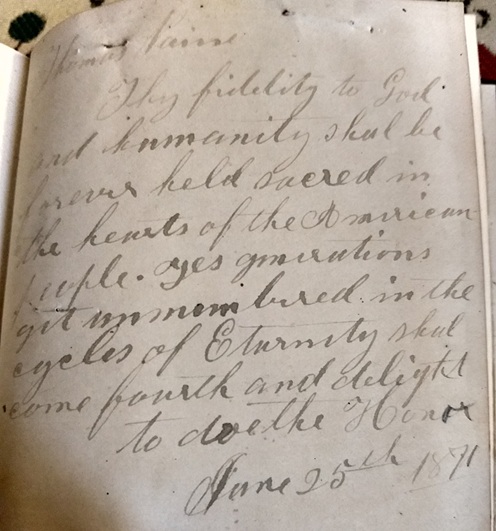 Thomas Paine
Thy fidelity to God
and humanity shal be
forever held sacred in
the hearts of the American
people. Yes generations
yit unnumbered in the
cycles of Eturnity shal
come fourth and delight
to doe the Honor
June 25th 1871